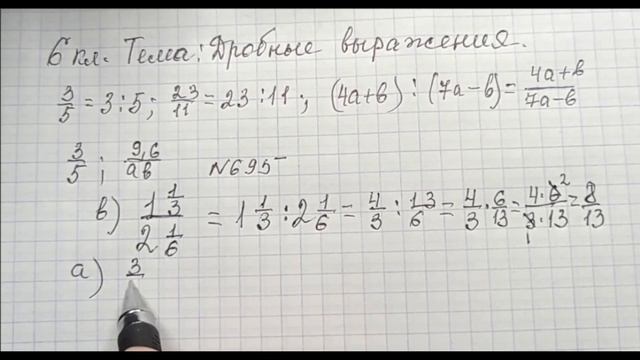 6 кл. Тема: Дробные выражения.
3/5 = 3:5; 23/11 = 23:11; (4a+b):(7a-b) = 4a+b/7a-b
3/5; 9,6/ab N695
в) 1 1/3 / 2 1/6 = 1 1/3 : 2 1/6 = 4/3 : 13/6 = 4/3 · 6/13 = 4·6 2/3·13 1 = 8/13
а) 3